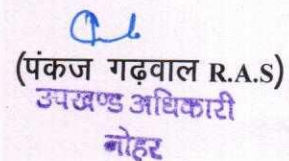 (पंकज गढ़वाल R.A.S)
उपखण्ड अधिकारी
नोहर